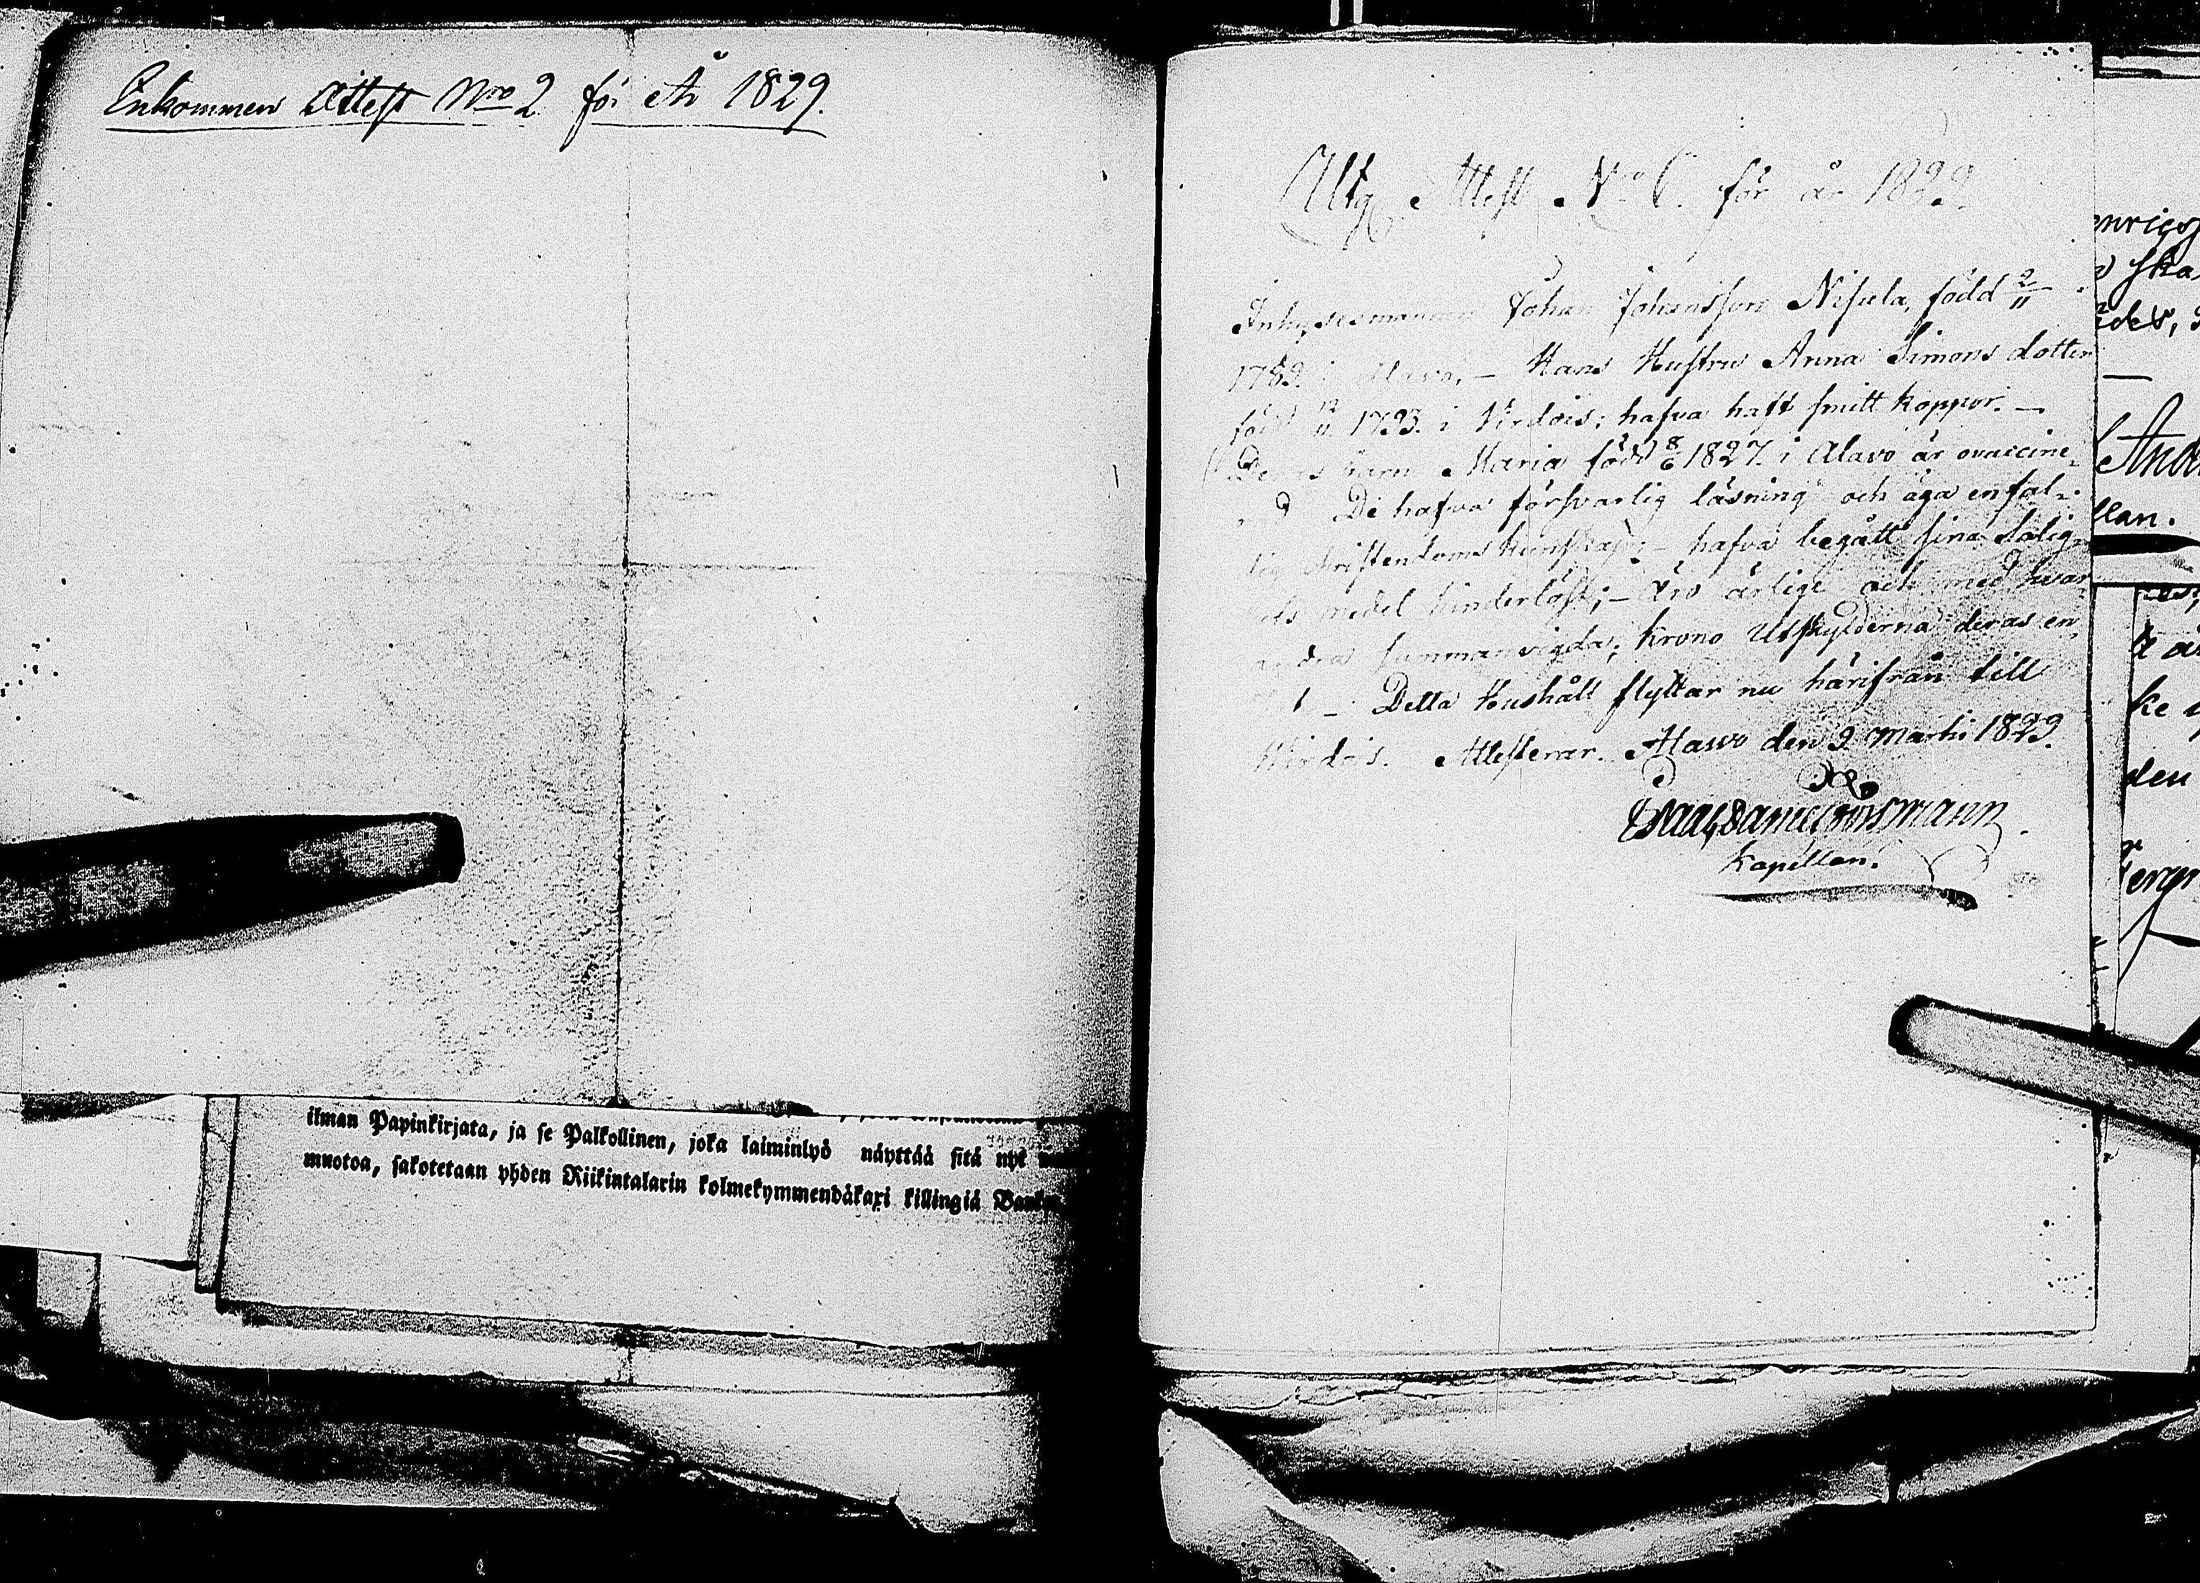 Inkommen Attest Nro 2 för År 1829.
ilman Papinkirjata, ja se Palkollinen, joka laiminlyö näyttää sitä nyt
muotoa, sakotetaan yhden Riikintalarin kolmekymmendäkaxi killingiä
Utg Attest Nro 6. för år 1829.
Inhysesmannen Johan Johansson Nisula, född 2/11
1789 i Alavo, — Hans Hustru Anna Simons dotter
född 1793. i Virdois; hafva haft smitt koppor. —
Deras barn Maria född 8/6 1827. i Alavo är ovaccine-
rad De hafva försvarlig läsning och äga enfal-
lig kristendoms kunskap; — hafva begått sina Salig-
hets medel hinderlöst; — äro ärlige och med hvar
andra sammanvigda; krono Utskylderna deras en
— Detta Hushåll flyttar nu härifrån till
Wirdois. Attesterar. Alavo den 9 Martii 1829.
Kapellan.
llan.
ke
den